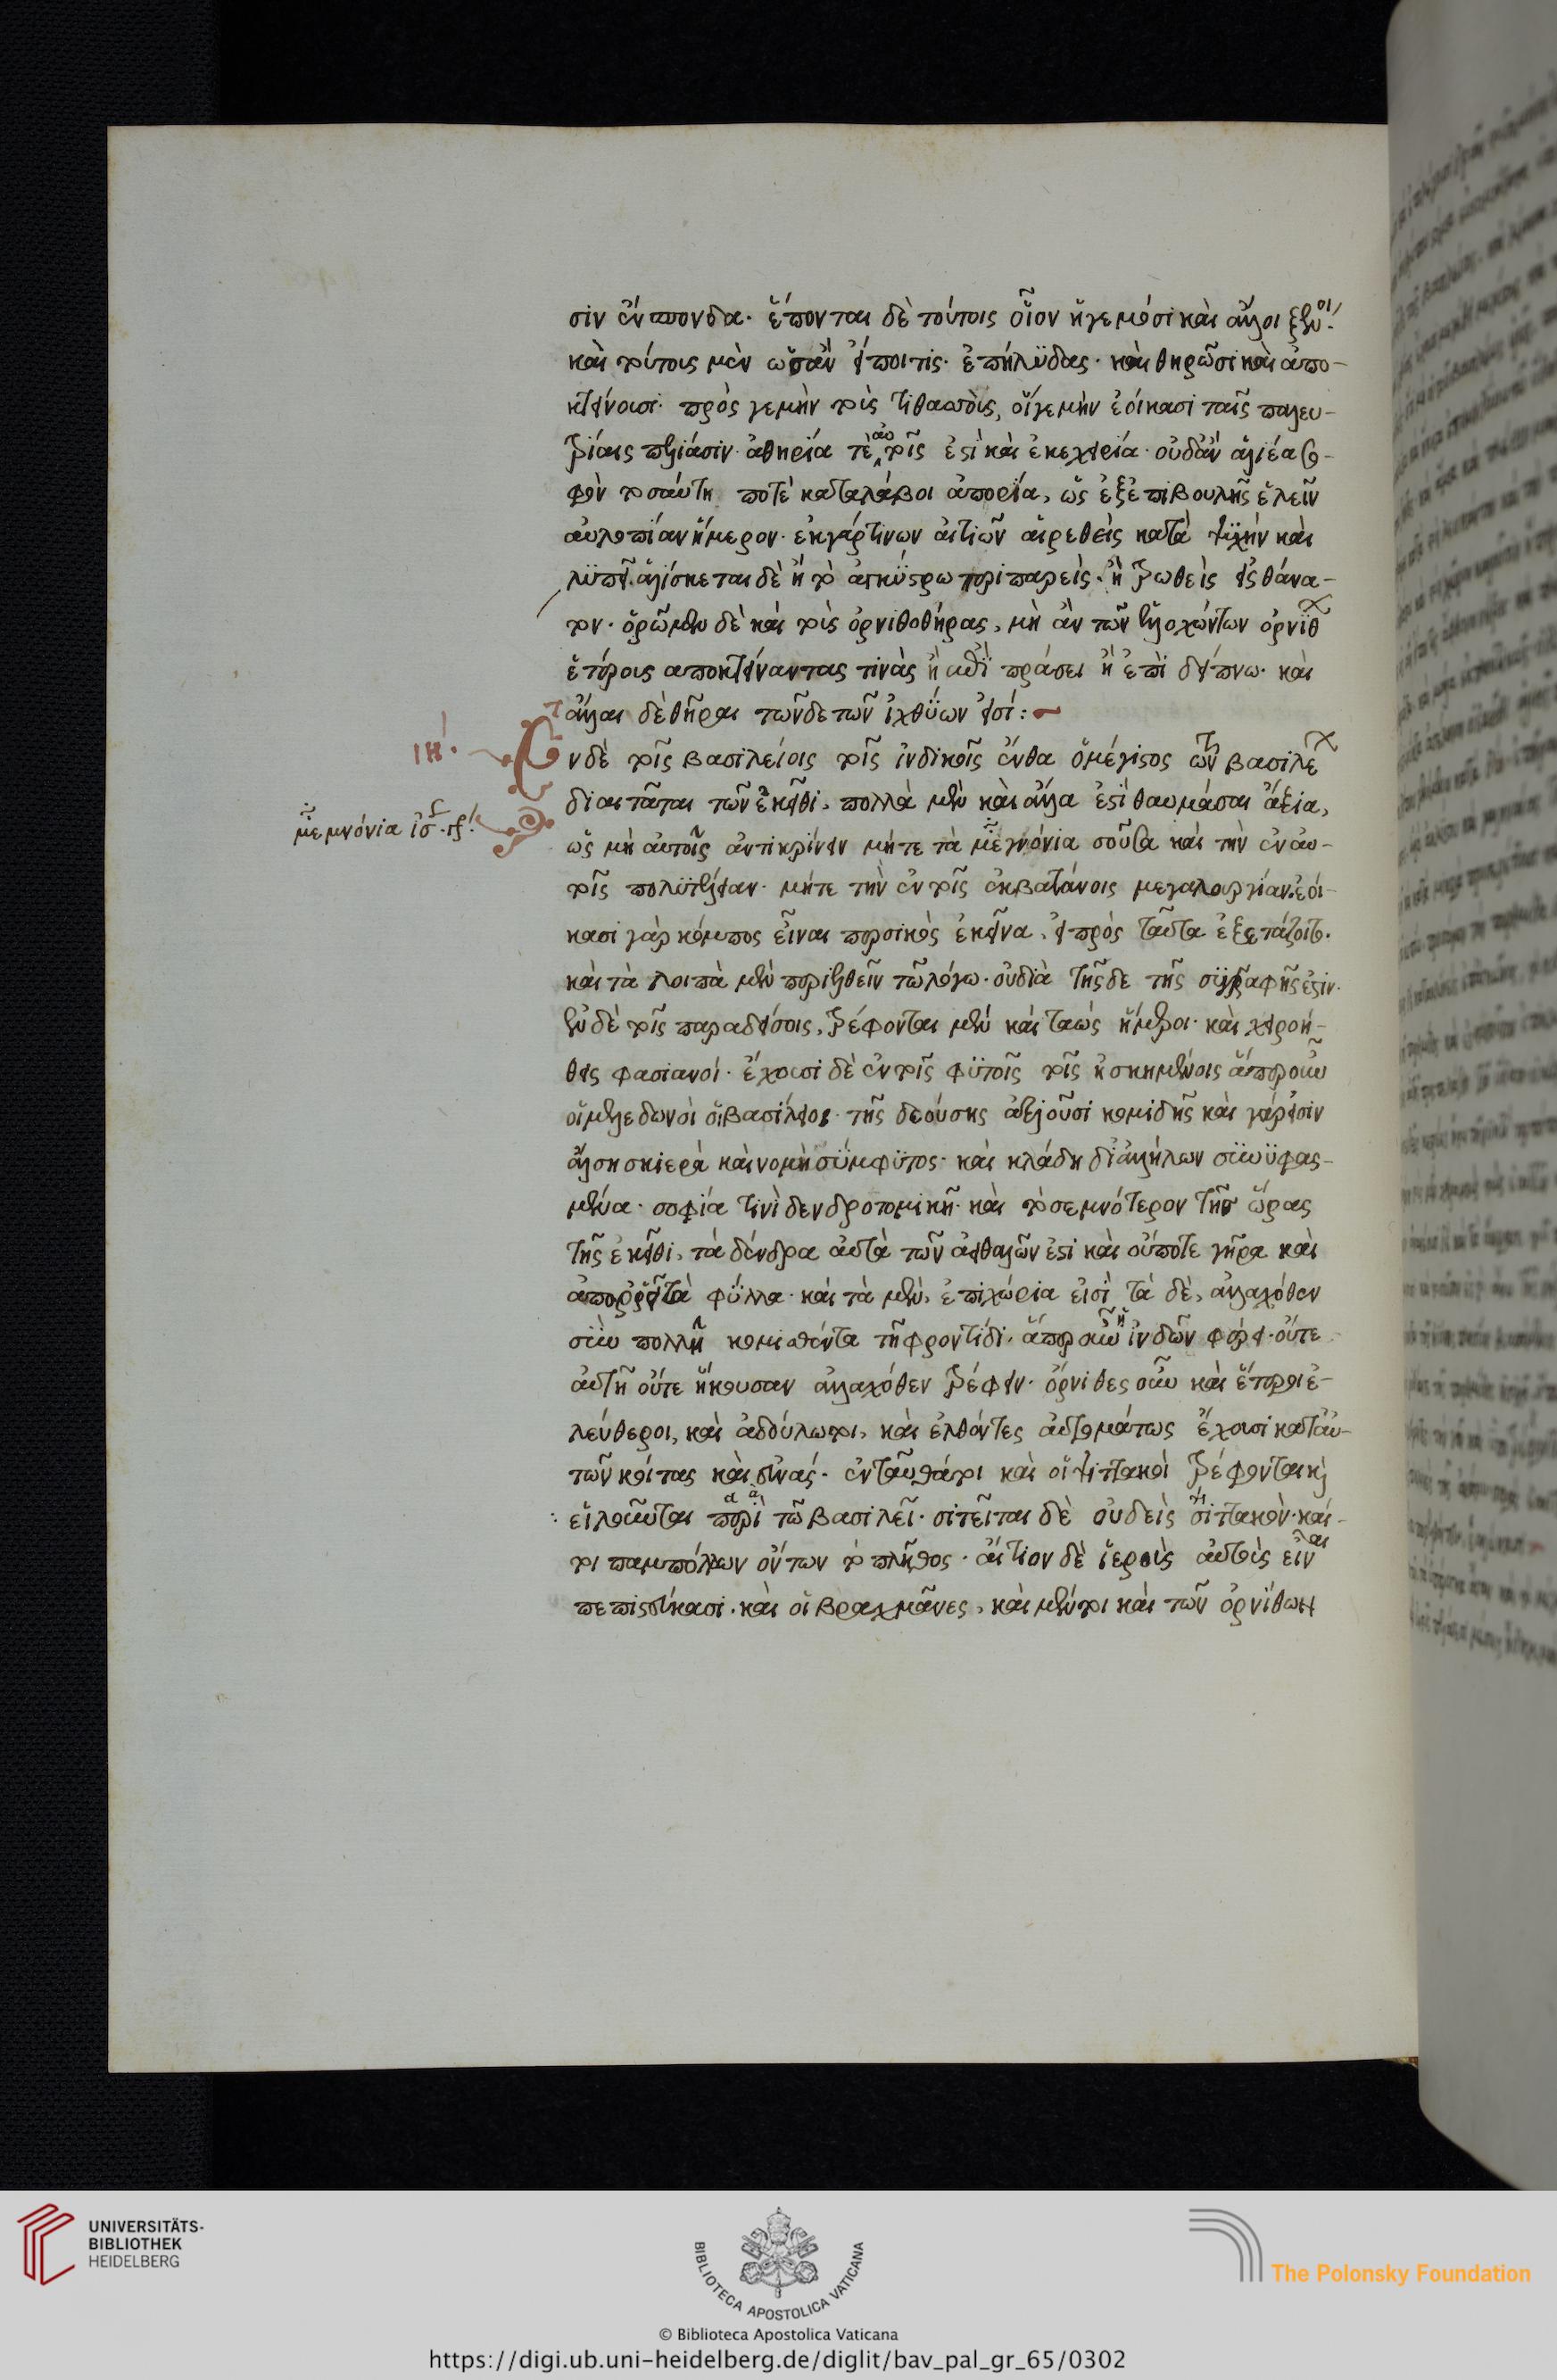 σιν ἔνσπονδα· ἕπονται δὲ τούτοις οἷον ἡγεμόσι καὶ ἄλλοι ξένοι·
καὶ τούτοις μὲν ὡς ἂν εἴποι τις· ἐπήλϋδας· καὶ θηρῶσι καὶ ἀπο-
κτείνουσι· πρός γε μὴν τοὺς τιθασοὺς, οἵγε μὴν ἐοίκασι ταῖς παλευ-
τρίαις πελιάσιν· ἀθηρία τὲ αὐτοῖς ἐστὶ καὶ ἐκεχειρία· οὐδ' ἂν ἁλιέα σο-
φὸν τοσαύτη ποτὲ καταλάβοι ἀπορία, ὡς ἐξ ἐπιβουλῆς ἑλεῖν
αὐλοπίαν ἥμερον· ἐκ γάρ τινων αἰτιῶν αἱρεθεὶς κατὰ τύχην καὶ
λϋπεῖ· ἁλίσκεται δὲ ἢ τὸ ἀγκΰστρω περιπαρεὶς· ἢ τρωθεὶς εἰς θάνα-
τον· ὁρῶμεν δὲ καὶ τοὺς ὀρνιθοθήρας, μὴ ἂν τῶν ἐλλοχώντων ὀρνίθ
ἑτέροις αποκτείναντας τινὰς ἢ ἐπὶ πράσει ἢ ἐπὶ δείπνω· καὶ
ἄλλαι δὲ θῆραι τῶνδε τῶν ἰχθΰων εἰσί:
ιη΄·
Ενδὲ τοῖς βασιλείοις τοῖς ἰνδικοῖς ἔνθα ὁ μέγιστος τῶν βασιλέ
διαιτᾶται τῶν ἐκεῖθι, πολλὰ μὲν καὶ ἄλλα ἐστὶ θαυμάσαι ἄξια,
μεμνόνια ἰσ.
ὡς μὴ αὐτοῖς ἀντικρίνειν μήτε τὰ μεγνόνια σοῦσα καὶ τὴν ἐν αὐ-
τοῖς πολϋτέλειαν· μήτε τὴν ἐν τοῖς ἐκβατάνοις μεγαλουργίαν· ἐοί-
κασι γὰρ κόμπος εἶναι περσικὸς ἐκεῖνα, εἰ πρὸς ταῦτα ἐξετάζοιτο·
καὶ τὰ λοιπὰ μὲν περιελθεῖν τῶ λόγω· οὐ διὰ τῆσδε τῆς συγγραφῆς ἐστιν·
ἐν δὲ τοῖς παραδείσοις, τρέφονται μὲν καὶ ταώς ἥμεροι· καὶ χειροή-
θεις φασιανοί· ἔχουσι δὲ ἐν τοῖς φϋτοῖς τοῖς ἠσκημένοις ἅπερ οὖν
οἱ μελεδωνοὶ οἱ βασίλειοι τῆς δεούσης ἀξιοῦσι κομιδῆς καὶ γάρ εἰσιν
ἄλση σκιερὰ καὶ νομὴ σΰμφϋτος· καὶ κλάδη δι' ἀλλήλων συνϋφας-
μένα· σοφία τινὶ δενδροτομικῆ· καὶ τὸ σεμνότερον τῆς ὥρας
τῆς ἐκεῖθι, τὰ δένδρα αὐτὰ τῶν ἀειθαλῶν ἐστὶ καὶ οὔποτε γηρᾶ καὶ
ἀπορρεῖ τὰ φΰλλα· καὶ τὰ μὲν, ἐπιχώρια εἰσὶ τὰ δὲ, ἀλλαχόθεν
σὺν πολλῆ κομισθέντα τῆ φροντίδι, ἅπερ οὖν ἡ ἰνδῶν φέρει· οὔτε
αὐτῆ οὔτε ἤκουσαν ἀλλαχόθεν τρέφειν· ὄρνιθες οὖν καὶ ἕτεροι ἐ-
λεύθεροι, καὶ ἀδούλωτοι, καὶ ἐλθόντες αὐτομάτως ἔχουσι κατ' αὐ-
τῶν κοίτας καὶ εὐνάς· ἐνταῦθά τοι καὶ οἱ ψιττακοὶ τρέφονται κὶ
εἰλοῦνται περὶ τῶ βασιλεῖ· σιτεῖται δὲ οὐδεὶς σίττακον· καί-
τοι παμπόλλων ὄντων τὸ πλῆθος· αἴτιον δὲ ἱεροὺς αὐτοὺς εἶναι
πεπιστεύκασι· καὶ οἱ βραχμᾶνες, καὶ μέντοι καὶ τῶν ὀρνίθων
UNIVERSITÄTS-
BIBLIOTHEK
HEIDELBERG
BIBLIOTECA APOSTOLICA VATICANA
The Polonsky Foundation
© Biblioteca Apostolica Vaticana
https://digi.ub.uni-heidelberg.de/diglit/bav_pal_gr_65/0302